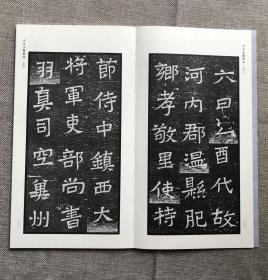 六日乙酉代故
河内郡温縣肥
鄉孝敬里使持
節侍中鎮西大
將軍吏部尚書
羽真司空冀州